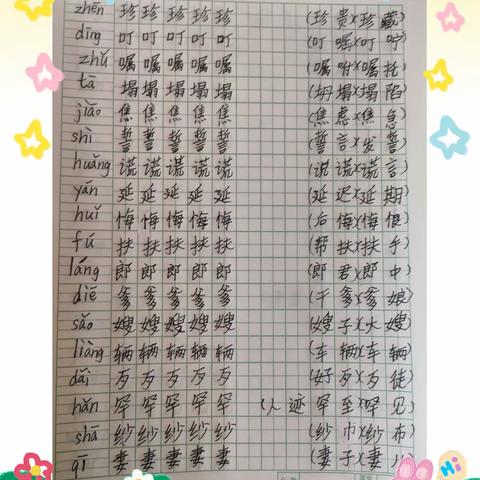 zhēn 珍 珍 珍 珍 珍 (珍贵)(珍藏)
dīng 叮 叮 叮 叮 叮 (叮嘱)(叮咛)
zhǔ 嘱 嘱 嘱 嘱 嘱 (嘱咐)(嘱托)
tā 塌 塌 塌 塌 塌 (坍塌)(塌陷)
jiāo 焦 焦 焦 焦 焦 (焦虑)(焦急)
shì 誓 誓 誓 誓 誓 (誓言)(发誓)
huǎng 谎 谎 谎 谎 谎 (说谎)(谎言)
yán 延 延 延 延 延 (延迟)(延期)
huǐ 悔 悔 悔 悔 悔 (后悔)(悔恨)
fú 扶 扶 扶 扶 扶 (帮扶)(扶手)
láng 郎 郎 郎 郎 郎 (郎君)(郎中)
diē 爹 爹 爹 爹 爹 (干爹)(爹娘)
sǎo 嫂 嫂 嫂 嫂 嫂 (嫂子)(大嫂)
liàng 辆 辆 辆 辆 辆 (车辆)(车辆)
dǎi 歹 歹 歹 歹 歹 (好歹)(歹徒)
hǎn 罕 罕 罕 罕 罕 (人迹罕至)(罕见)
shā 纱 纱 纱 纱 纱 (纱巾)(纱布)
qī 妻 妻 妻 妻 妻 (妻子)(妻儿)
Hi